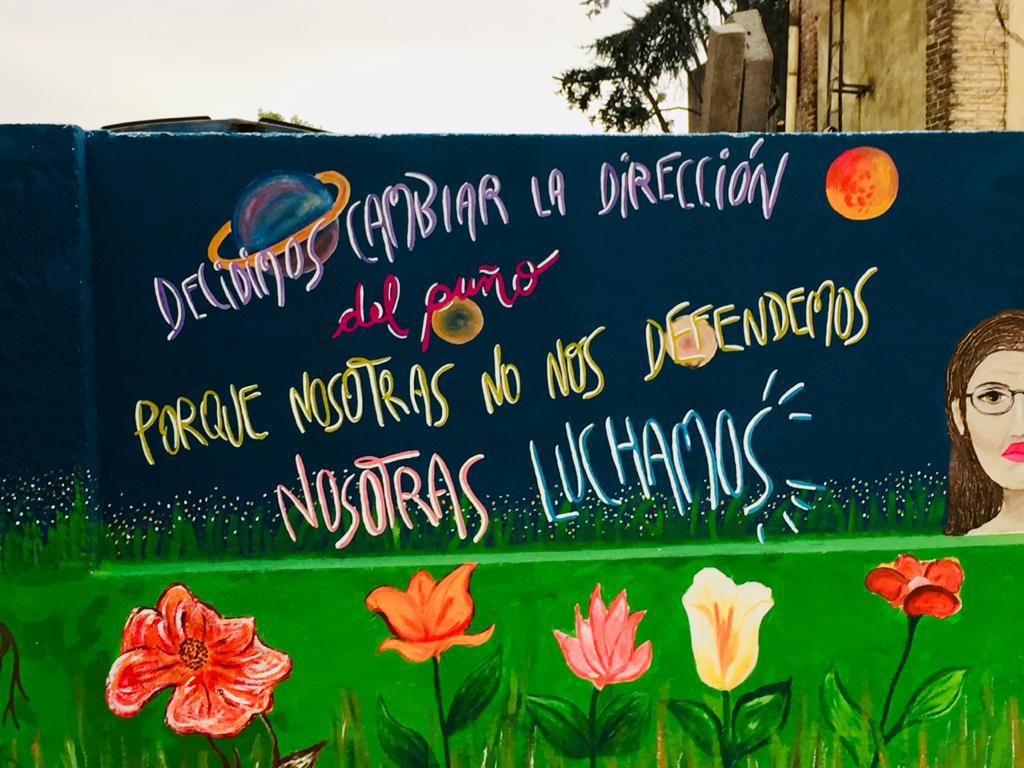 DECIDIMOS CAMBIAR LA DIRECCIÓN
del puño
PORQUE NOSOTRAS NO NOS DEFENDEMOS
NOSOTRAS LUCHAMOS